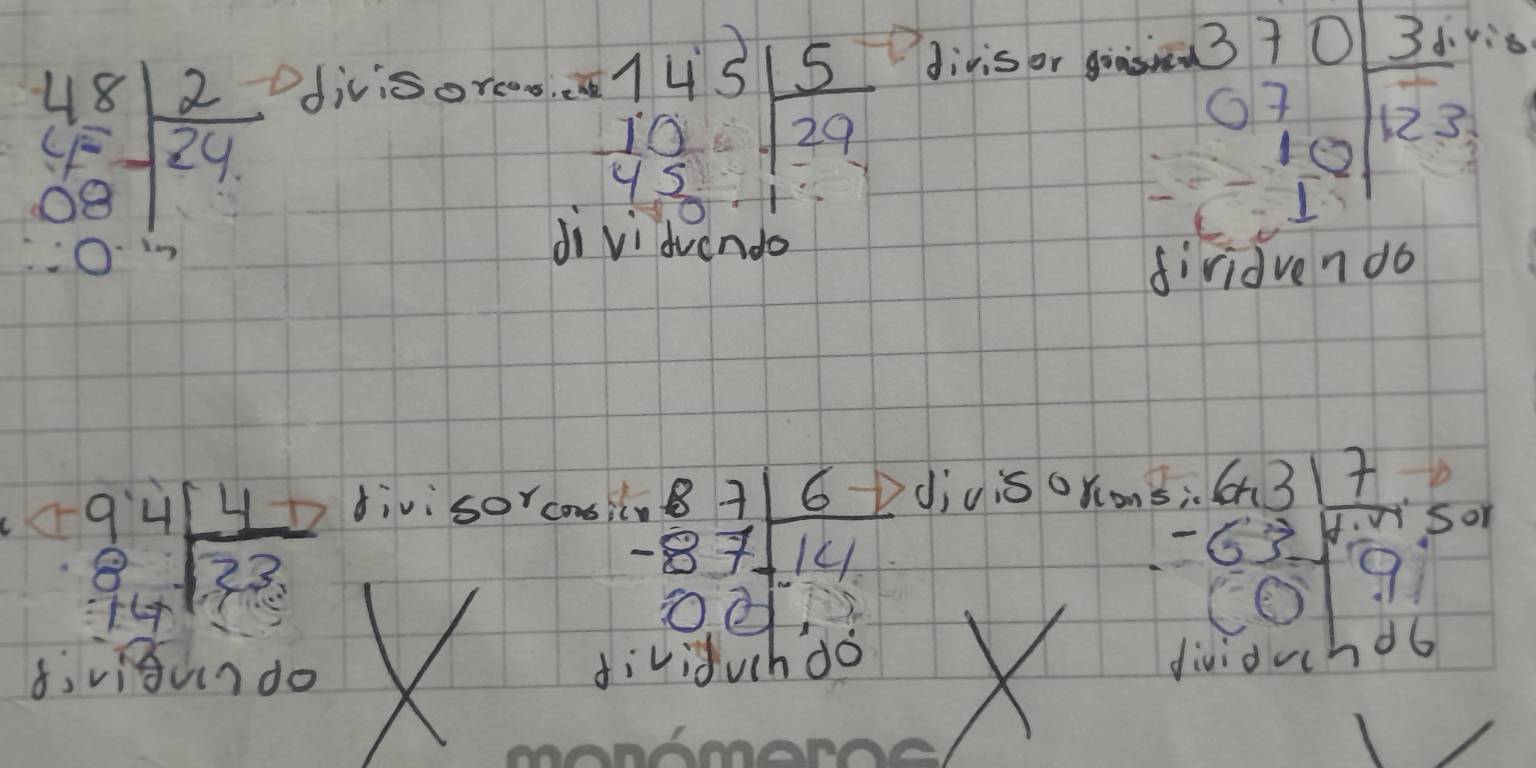 48 2 divisor 145 5 divisor 370 3 divis
4 24 10 29 07 123
08 45 10
0 0 1
dividuendo
dividuendo
94 4 divisor 87 6 divisor 63 7
8 23 -87 14 -63 divisor
14 00 0 9
dividuendo dividuendo dividuendo
monómeros